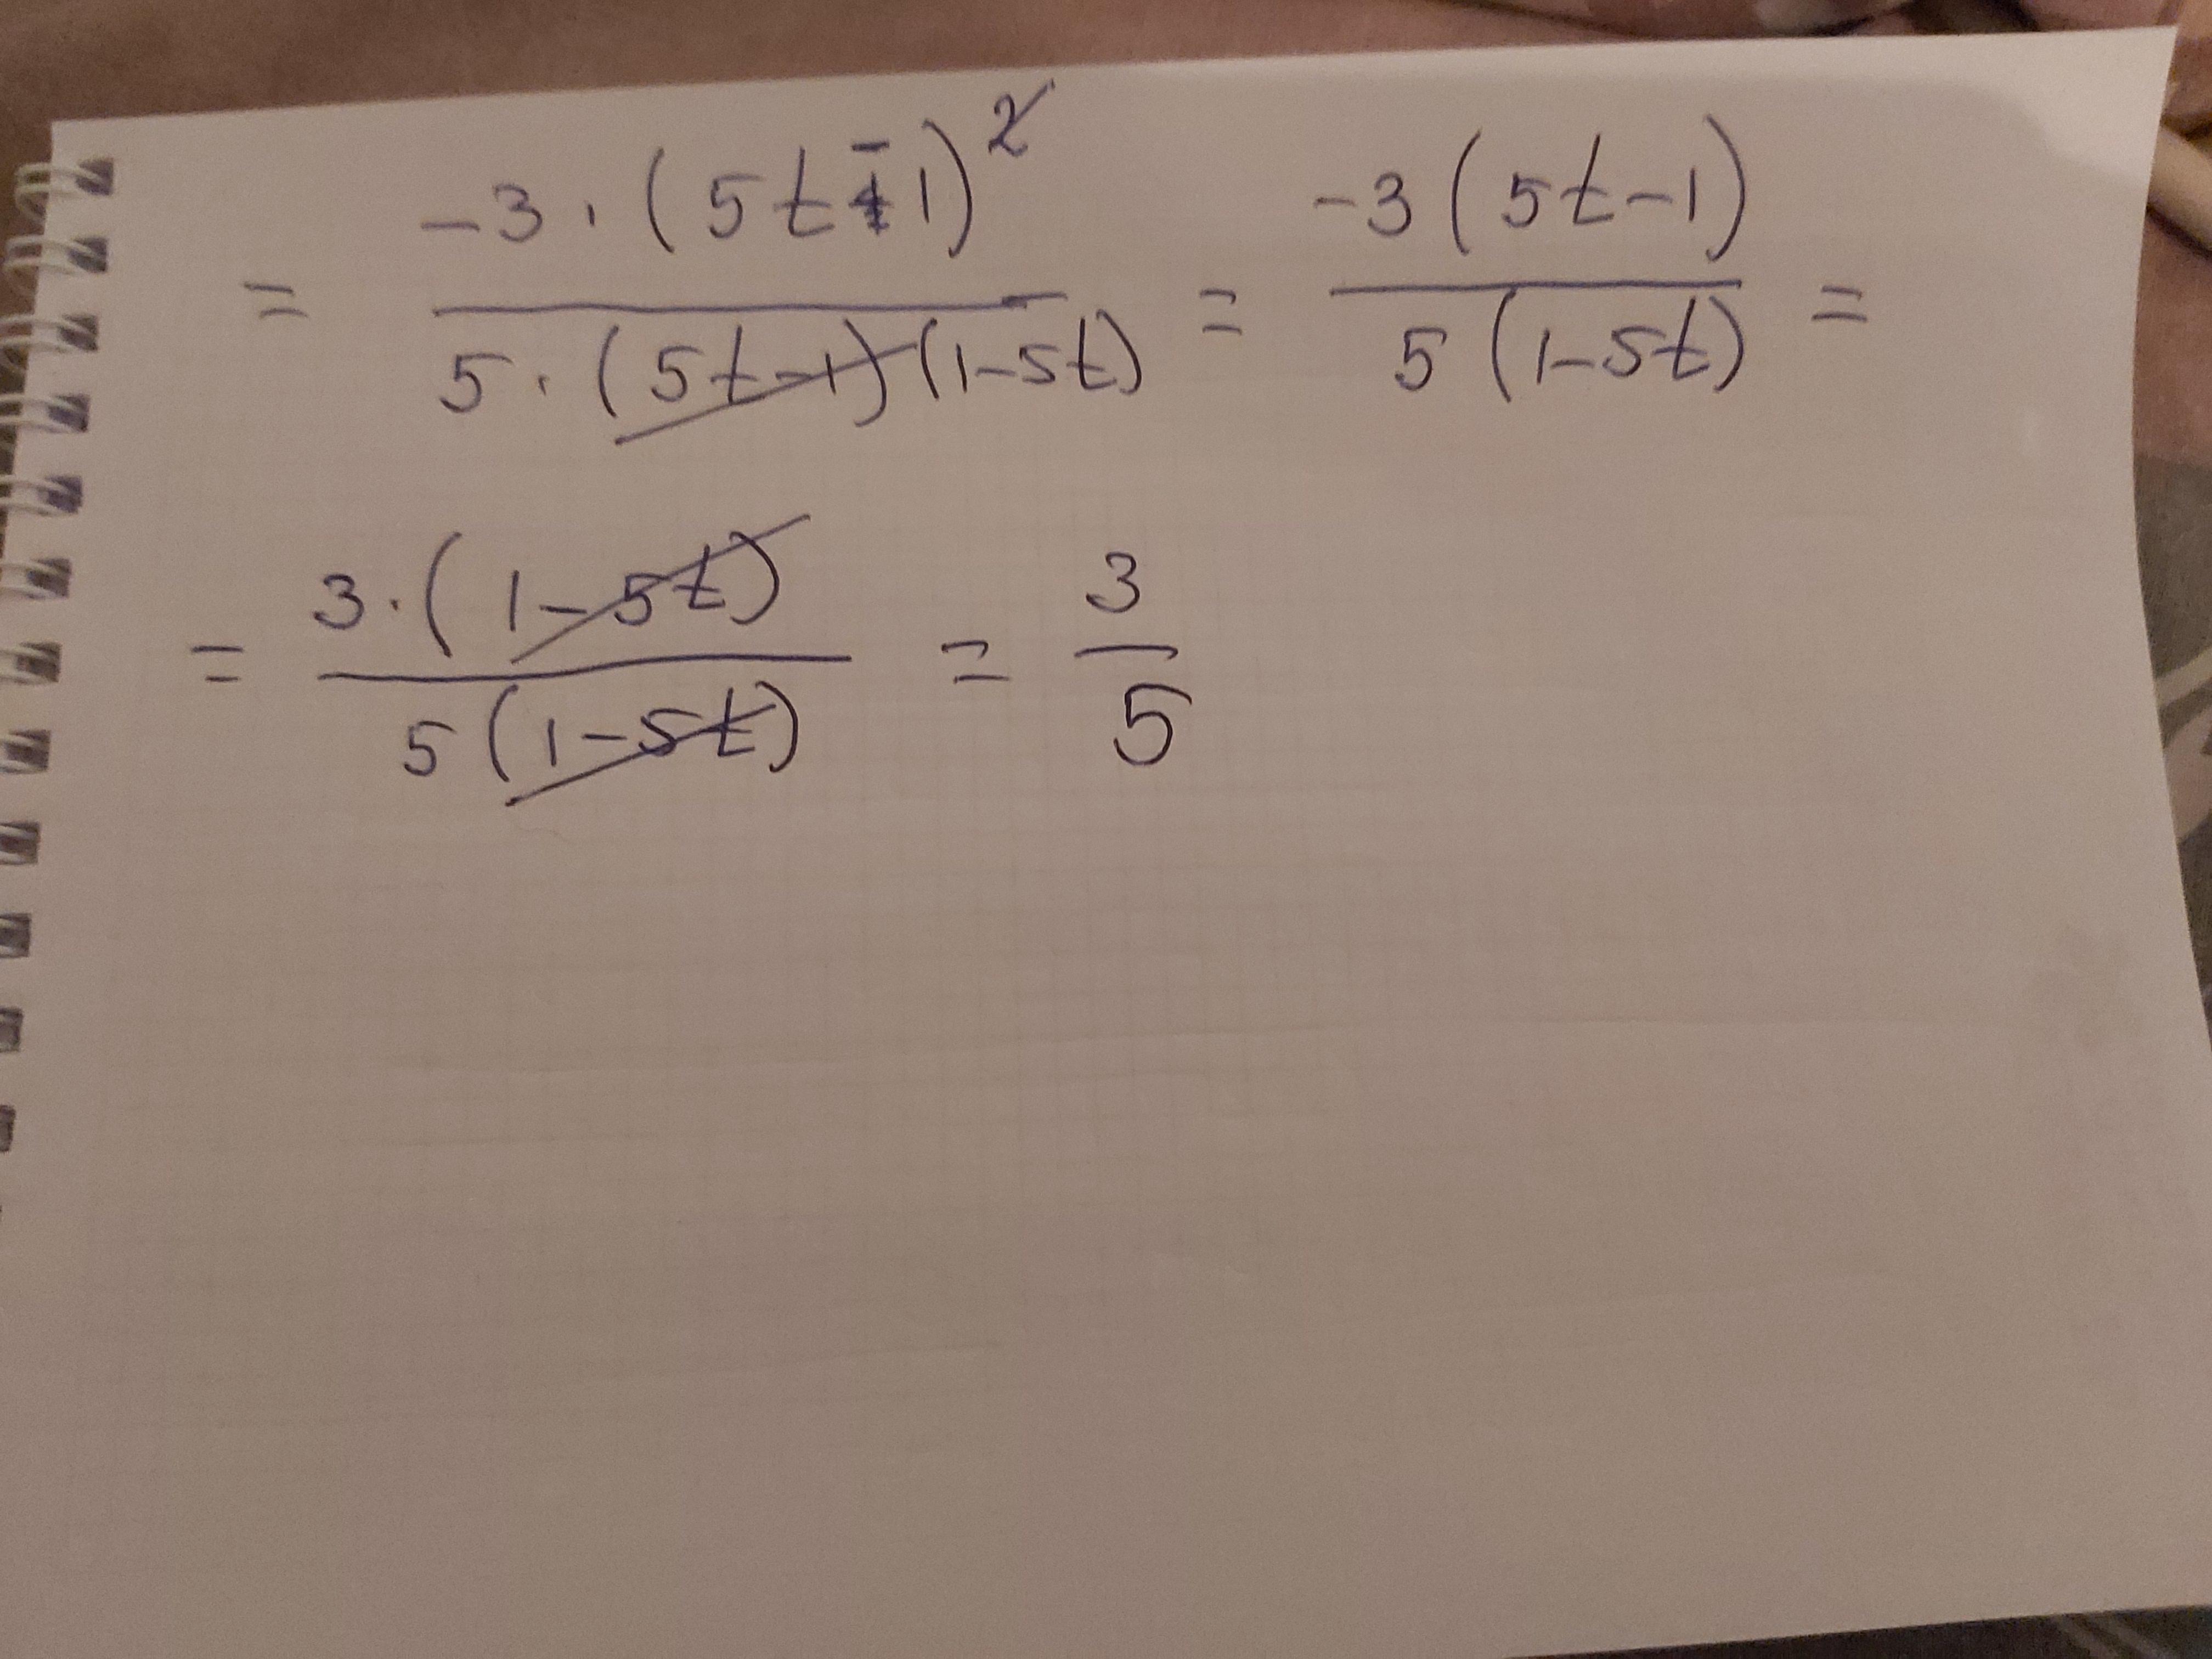 = -3 · (5t-1)² / 5 · (5t-1)(1-5t) = -3(5t-1) / 5(1-5t) =
= 3 · (1-5t) / 5(1-5t) = 3/5